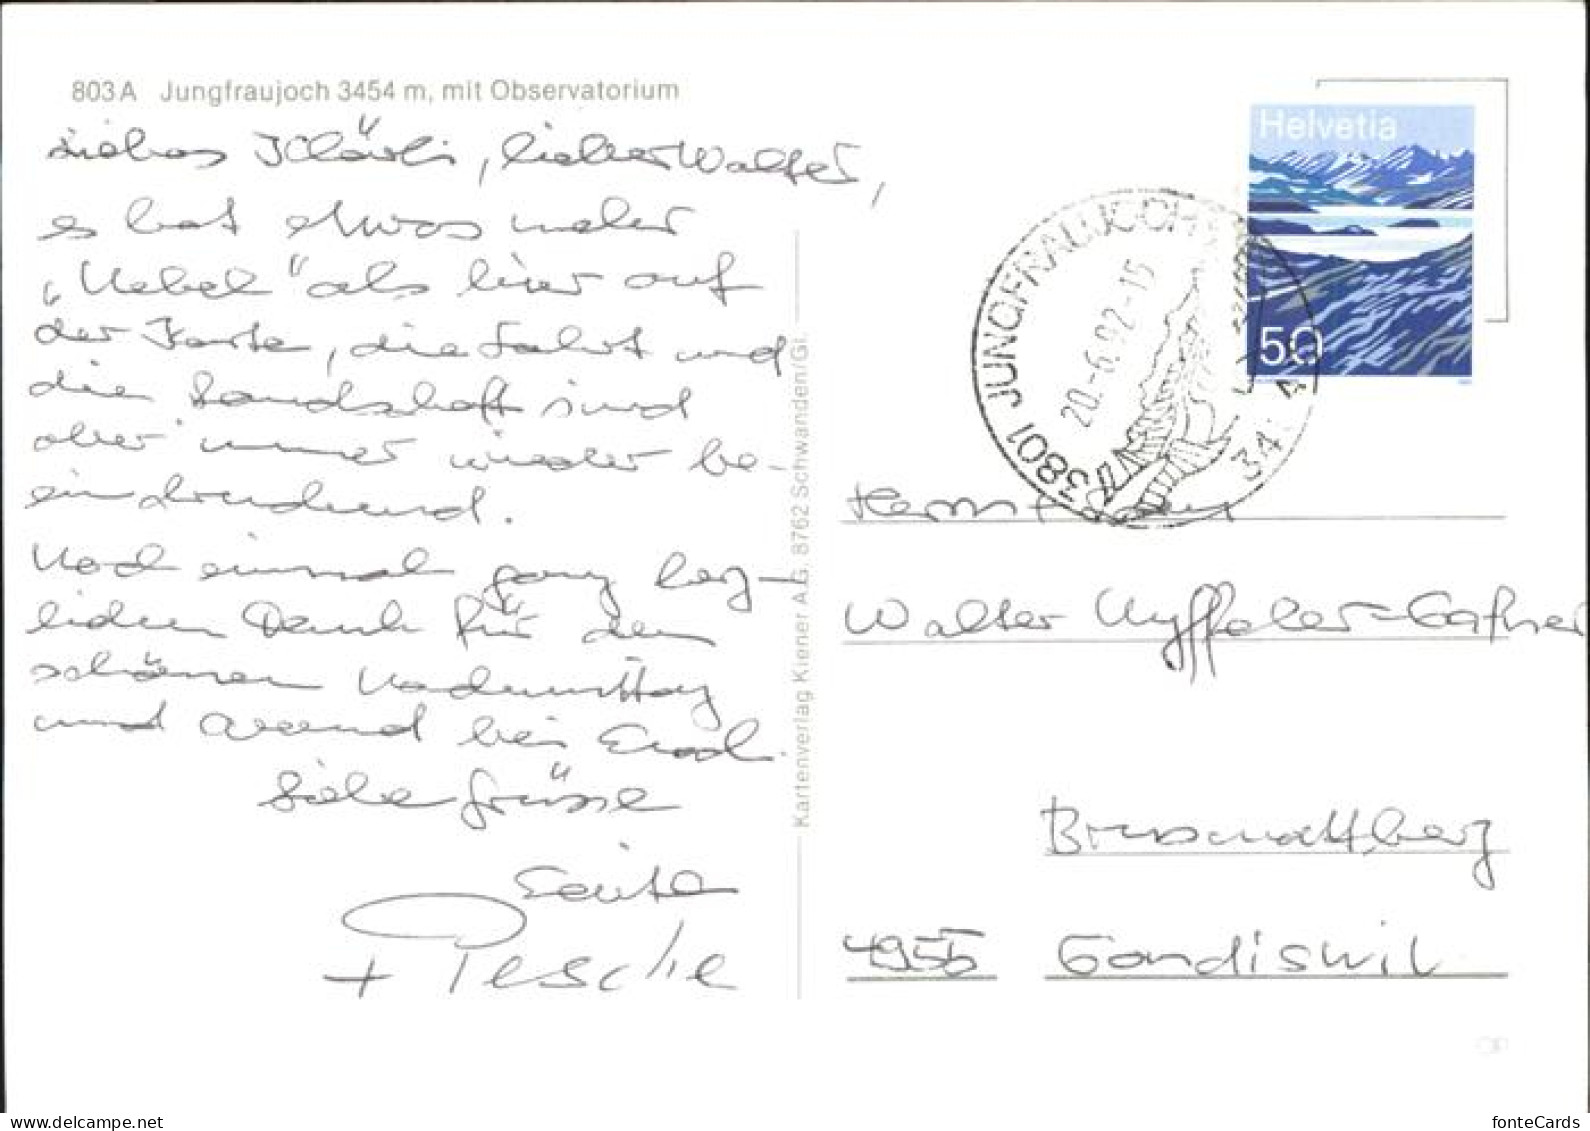 803A Jungfraujoch 3454 m, mit Observatorium
Liebes Klärli, lieber Walter,
es hat etwas mehr
„Nebel" als hier auf
der Karte, die Fahrt und
die Landschaft sind
aber immer wieder be-
eindruckend.
Noch einmal ganz herz-
lichen Dank für den
schönen Nachmittag
und Abend bei Euch.
Liebe Grüsse
+ Pesche
Kartenverlag Kiener A.G. 8762 Schwanden/Gl.
Helvetia
50
3801 JUNGFRAUJOCH
20.-6.92-15
Herrn + Frau
Walter Nyffeler-Gafner
4955 Gondiswil
delcampe.net
fonteCards